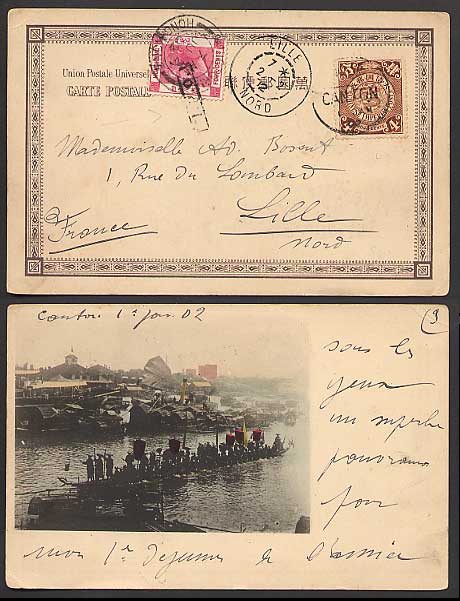 Union Postale Universelle
CARTE POSTALE
HONG
LILLE
7
NORD
CANTON
Mademoiselle Ad. Bosaut
1, Rue du Lombard
Lille
Nord
France
Canton 1er Jan. 02
3
sous les
yeux
un superbe
panorama
pour
mon 1er dejeuner de l'année